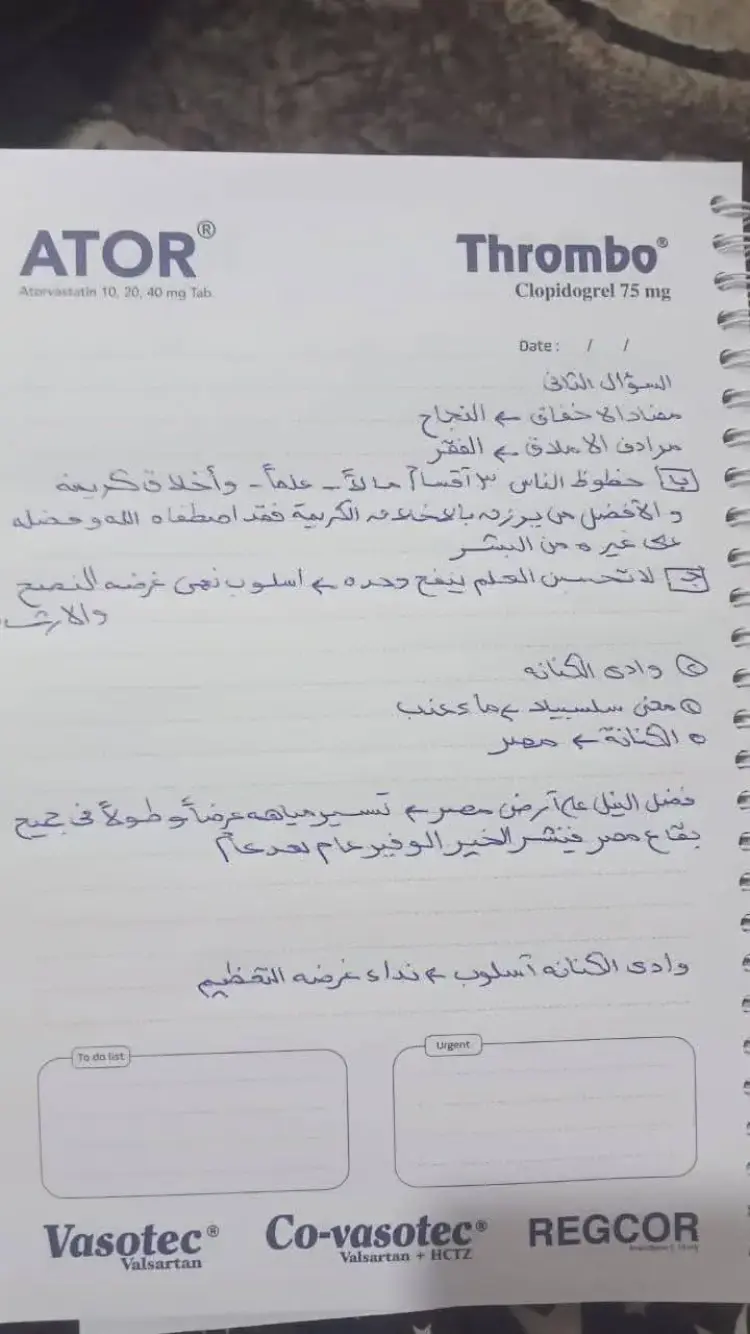 ATOR®
Atorvastatin 10, 20, 40 mg Tab.
Thrombo®
Clopidogrel 75 mg
Date : / /
السؤال الثانى
مضاد الاخفاق ← النجاح
مرادف الاملاق ← الفقر
ب حظوظ الناس ٣ أقسام مالاً - علماً - وأخلاق كريمه
والأفضل من يرزق بالاخلاق الكريمة فقد اصطفاه الله وفضله
على غيره من البشر
ج لا تحسبن العلم ينفع وحده ← اسلوب نهى غرضه النصح
والارشاد
② وادى الكنانه
معنى سلسبيلا ← ماء عذب
الكنانة ← مصر
فضل النيل على أرض مصر ← تسير مياهه عرضاً وطولاً فى جميع
بقاع مصر فينشر الخير الوفير عام بعد عام
وادى الكنانه أسلوب ← نداء غرضه التعظيم
To do list
Urgent
Vasotec®
Valsartan
Co-vasotec®
Valsartan + HCTZ
REGCOR